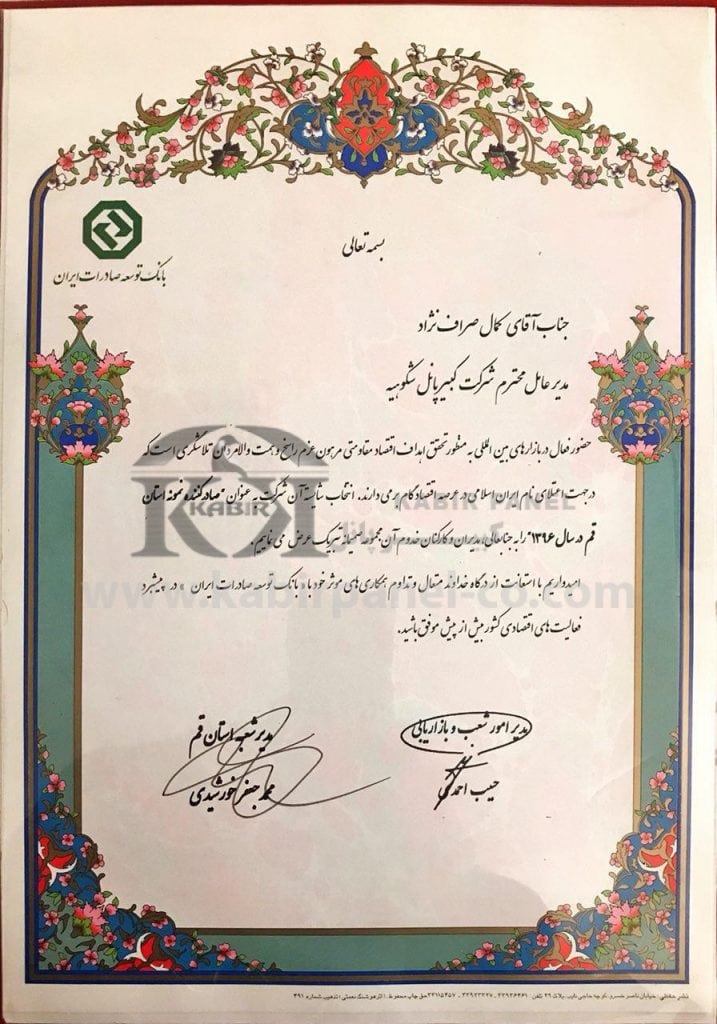 بسمه تعالی
بانک توسعه صادرات ایران
جناب آقای کمال صراف نژاد
مدیر عامل محترم شرکت کبیر پانل شکوهیه
حضور فعال در بازارهای بین المللی به منظور تحقق اهداف اقتصاد مقاومتی مرهون عزم راسخ و همت والا مردان تلاشگری است که
در جهت اعتلای نام ایران اسلامی در عرصه اقتصاد گام بر می دارند. انتخاب شایسته آن شرکت به عنوان "صادر کننده نمونه استان
قم در سال ۱۳۹۶" را به جنابعالی، مدیران و کارکنان خدوم آن مجموعه صمیمانه تبریک عرض می نماییم.
امیدواریم با استعانت از درگاه خداوند متعال و تداوم همکاری های موثر خود با « بانک توسعه صادرات ایران » در پیشبرد
فعالیت های اقتصادی کشور بیش از پیش موفق باشید.
KABIR
KABIR PANEL
کبیر پانل
www.kabirpanel-co.com
مدیر امور شعب و بازاریابی
حبیب احمدی
مدیر شعبه استان قم
محمد جعفر خورشیدی
نشر حافظی: خیابان ناصر خسرو، کوچه حاجی نایب، پلاک ۲۹ تلفن: ۳۳۹۳۶۴۶۱ ۳۳۱۱۵۴۵۷ حق چاپ محفوظ. اثر هوشنگ نعمتی: تذهیب شماره ۴۹۱